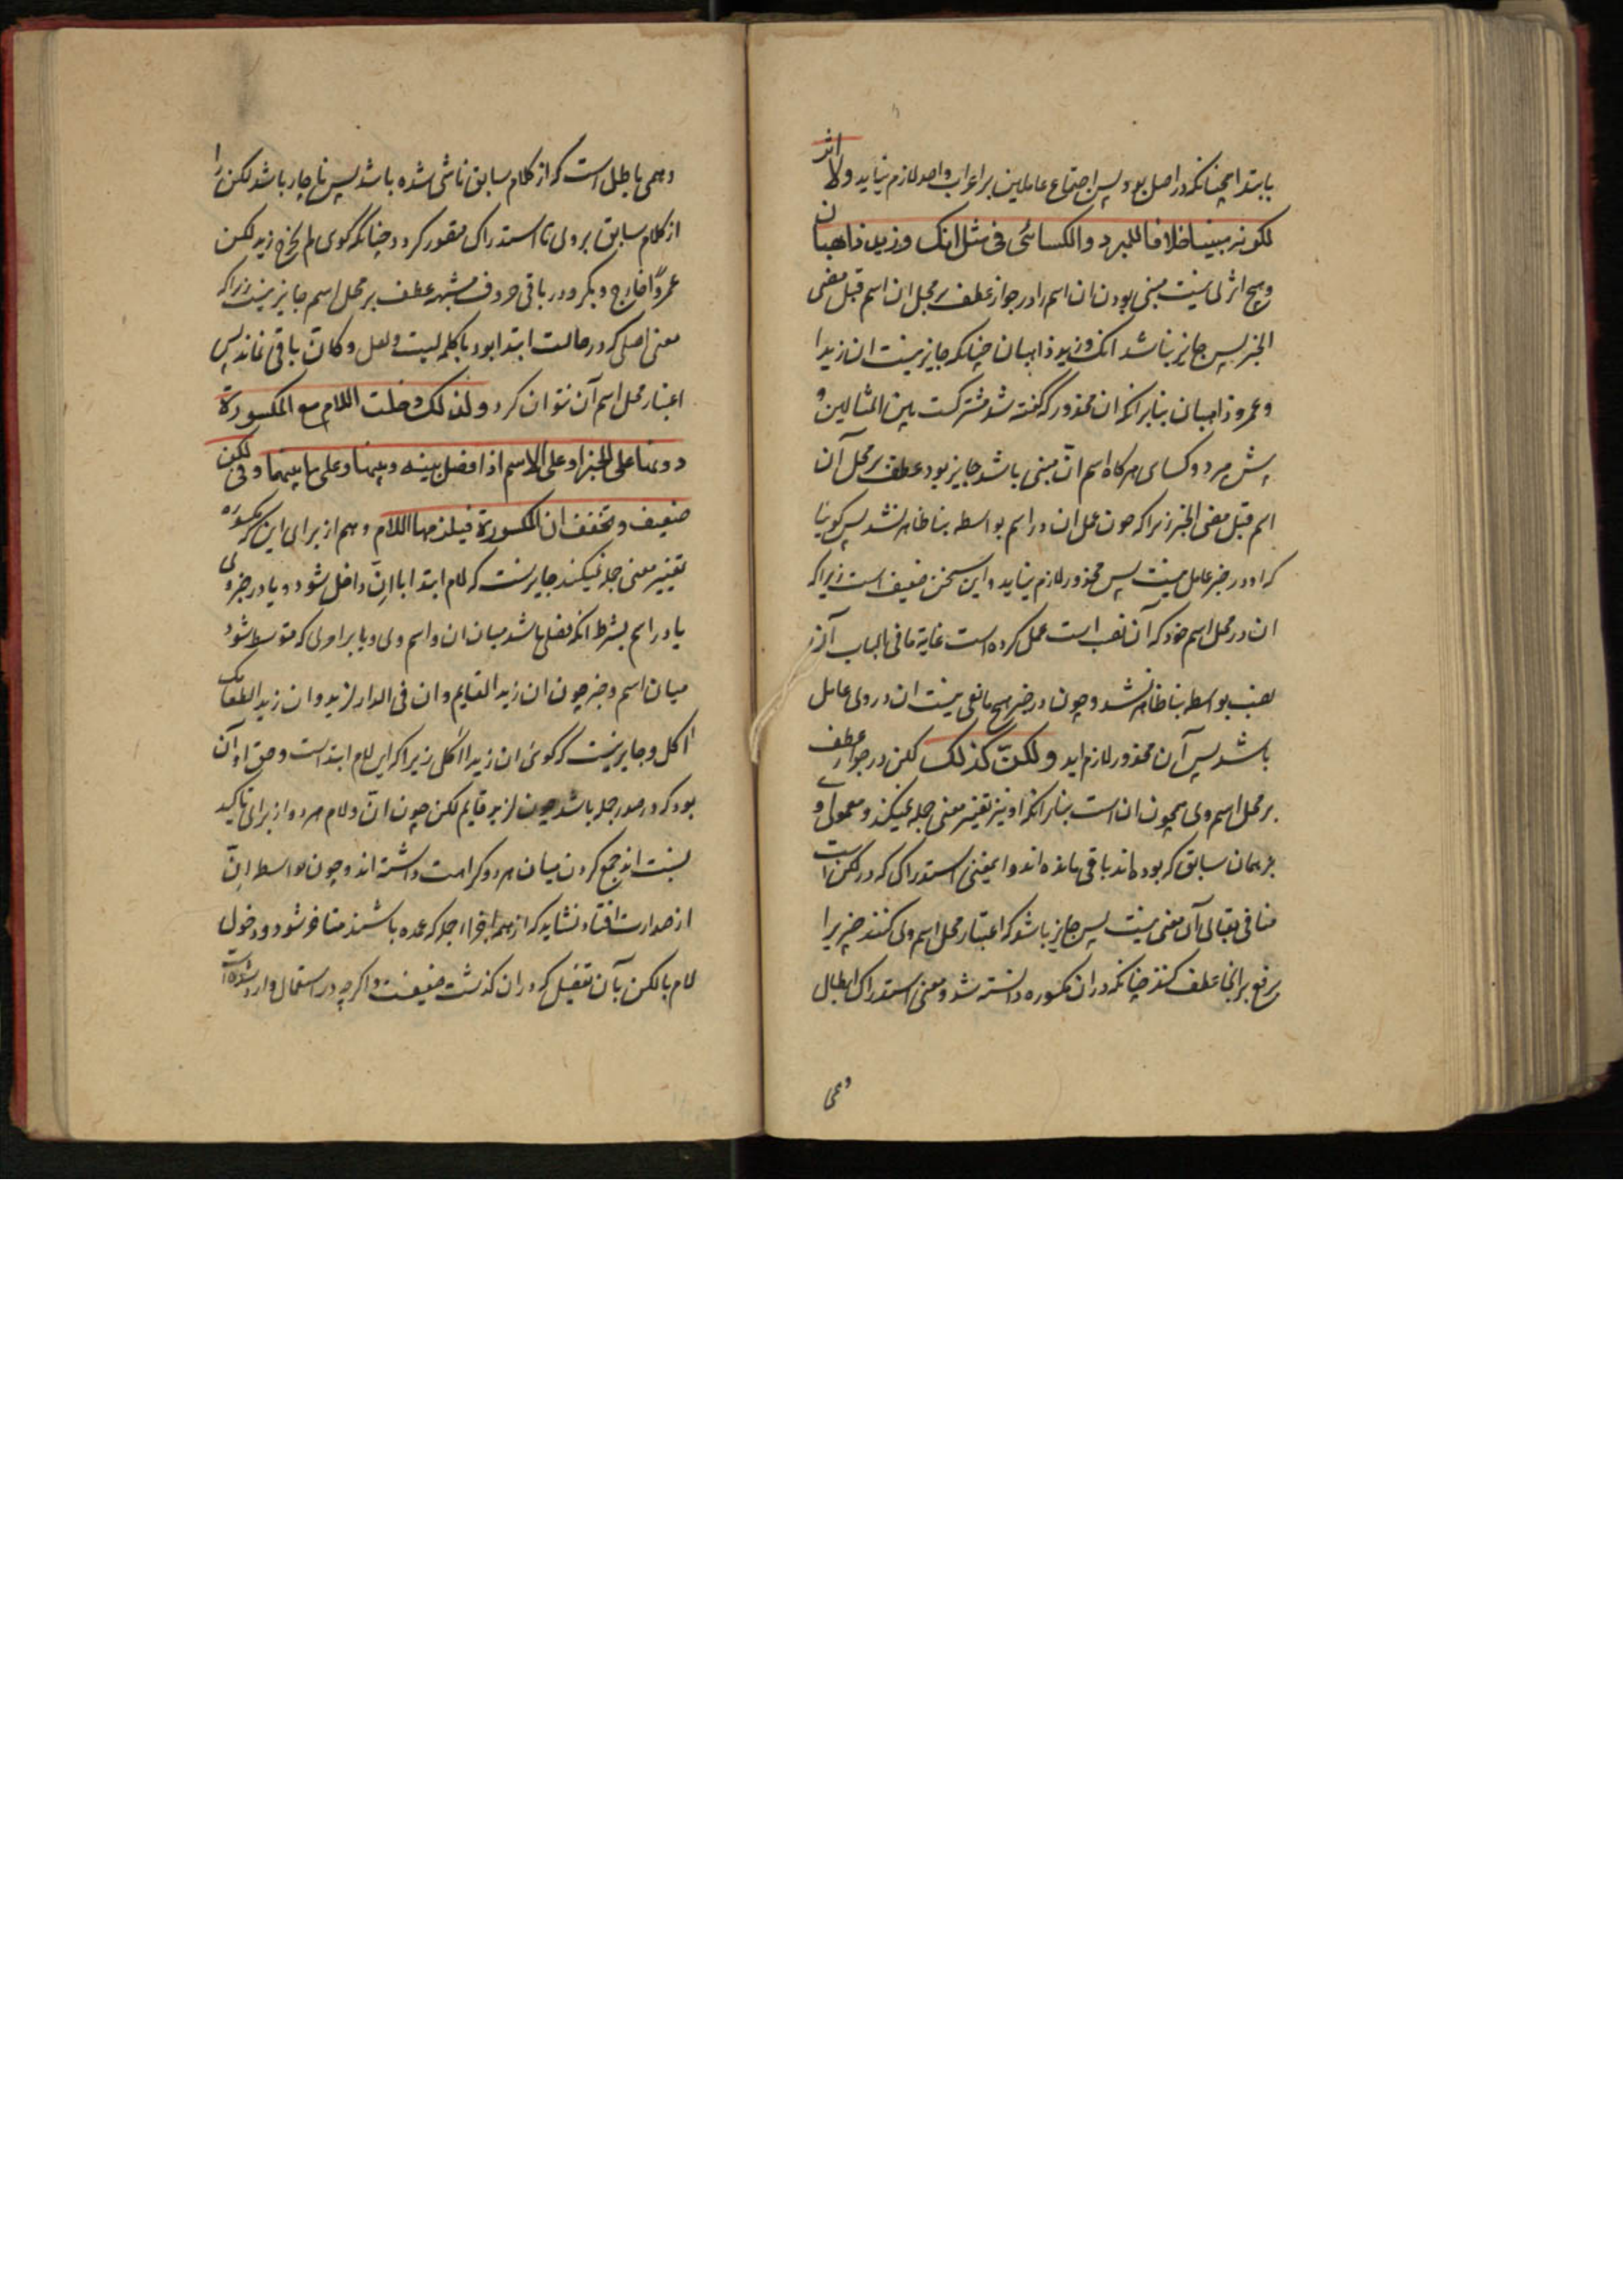 بابتدا همچنانکه در اصل بود پس اجتماع عاملین بر اعراب واحد لازم نیاید ولا اثر
لکونه مبینا خلافا للمبرد والکسائی فی مثل انک وزید ذاهبان
وهیچ اثر نیست مبنی بودن ان اسم را در جواز عطف بر محل ان اسم قبل مضی
الخبر پس جایز نباشد انک وزید ذاهبان چنانکه جایز نیست ان زیدا
وعمرو ذاهبان بنابر انکه ان محذور که گفته شد مشترکست بین المثالین و
پیش مبرد وکسای هرکاه اسم انّ مبنی باشد جایز بود عطف بر محل آن
اسم قبل مضی الخبر زیرا که چون عمل ان در اسم بواسطه بنا ظاهر نشد پس کوئیا
که او در خبر عامل نیست پس محذور لازم نیاید واین سخن ضعیف است زیرا که
ان در محل اسم خود که آن نصب است عمل کرده است غایة ما فی الباب اثر
نصب بواسطه بنا ظاهر نشد وچون در خبر هیچ مانعی نیست ان در وی عامل
باشد پس آن محذور لازم اید ولکنّ کذلک لکن در جواز عطف
بر محل اسم وی همچون ان است بنابر انکه او نیز تغییر معنی جمله نمیکند ومعمولی او
بر همان سابق که بوده اند باقی مانده اند وایمعنی استدراکی که در لکن است
منافی بقای آن معنی نیست پس جایز باشد که اعتبار محل اسم وی کنند چیزیرا
برفع برانجا عطف کنند چنانکه در ان مکسوره دانسته شد ومعنی استدراک ابطال
وهمی
وهمی باطل است که از کلام سابق ناشی شده باشد پس ناچار باشد لکن را
از کلام سابق بروی تا استدراک متصور کردد چنانکه گوی لم یخرج زید لکن
عمرواً خارج وبکر ودر باقی حروف مشبهه عطف بر محل اسم جایز نیست زیرا که
معنی اصلی که در حالت ابتدا بود با کلمه لیت ولعل وکانّ باقی نماند پس
اعتبار محل اسم آن نتوان کرد ولذلک دخلت اللام مع المکسورة
دونها علی الخبر او علی الاسم اذا فصل بینه وبینها وعلی ما بینهما وفی لکن
ضعیف وتخفف ان المکسورة فیلزمها اللام وهم از برای این که مکسوره
تغییر معنی جمله نمیکند جایز نست که لام ابتدا با انّ داخل شود ویا در خبر وی
یا در اسم بشرط انکه فصلی باشد میان ان واسم وی ویا بر امری که متوسط شود
میان اسم وخبر چون ان زیدا لقایم وان فی الدار لزید وان زیدا لطعامک
اکل وجایز نیست که کوی ان زیدا اکل زیرا که این لام ابتداست وحق او آن
بود که در صدر جمله باشد چون لزید قایم لکن چون انّ ولام هر دو از برای تاکید
نسبت اند جمع کردن میان هر دو کراهت داشته اند وچون بواسطه انّ
از صدارت افتاد نشاید که از همه اجزاء جمله که عمده باشند متاخر شود ودخول
لام بالکن بآن تفصیل که در ان کذشت ضعیفست واکرچه در استعمال وارد شده است